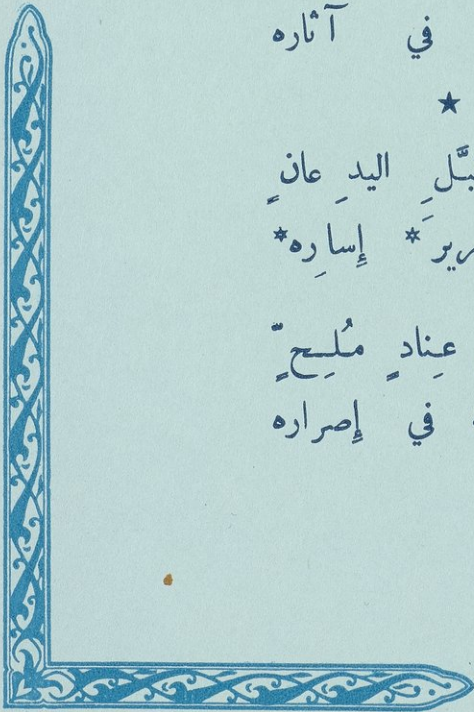 في آثاره
★
اليدِ عانٍ
إِسارِه*
عِنادٍ مُلِحٍّ
في إِصراره